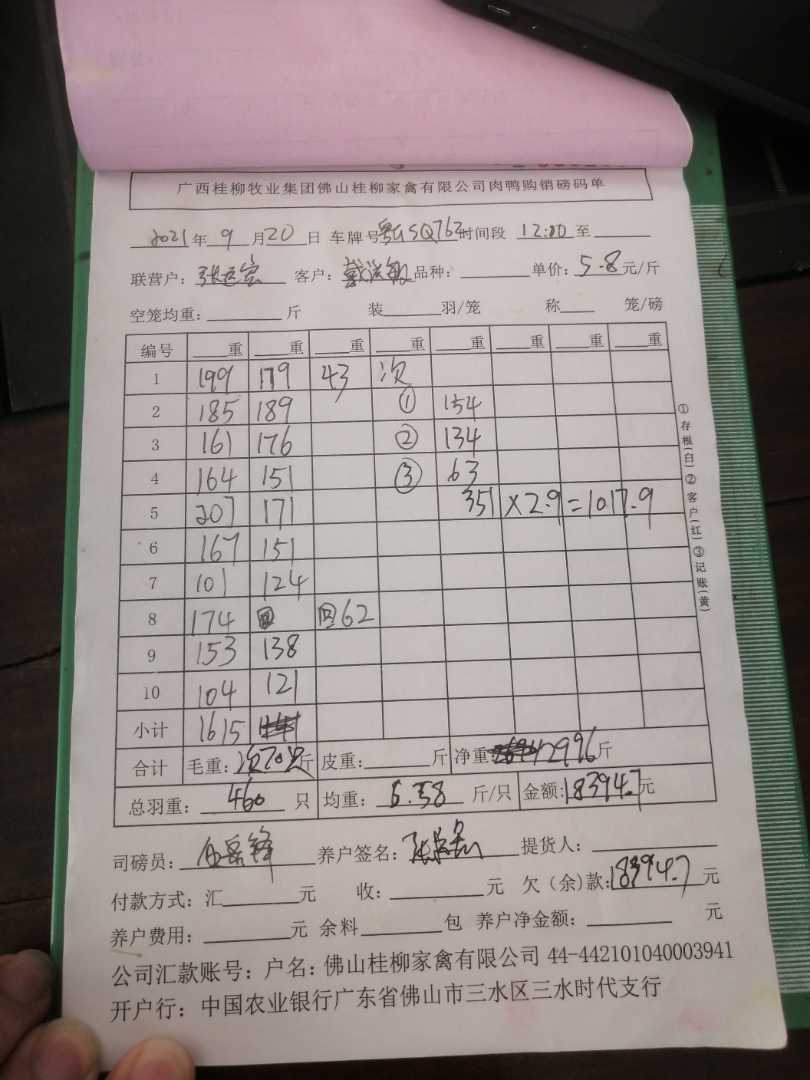 广西桂柳牧业集团佛山桂柳家禽有限公司肉鸭购销磅码单
2021年9月20日 车牌号粤GSQ762时间段 12:00至
联营户: 客户: 品种: 单价: 5.8元/斤
空笼均重: 斤 装 羽/笼 称 笼/磅
编号 重 重 重 重 重 重 重 重
1 199 179 43 次
2 185 189 ① 154
3 161 176 ② 134
4 164 151 ③ 63
5 207 171 351 ×2.9 =1017.9
6 167 151
7 101 124
8 174 回 回62
9 153 138
10 104 121
小计 1615
合计 毛重:次70只斤 皮重: 斤 净重 2996斤
总羽重: 460 只 均重: 6.58 斤/只 金额:18394.7元
司磅员: 养户签名: 提货人:
付款方式: 汇 元 收: 元 欠(余)款:18394.7元
养户费用: 元 余料 包 养户净金额: 元
公司汇款账号: 户名: 佛山桂柳家禽有限公司 44-442101040003941
开户行: 中国农业银行广东省佛山市三水区三水时代支行
①存根(白)②客户(红)③记账(黄)